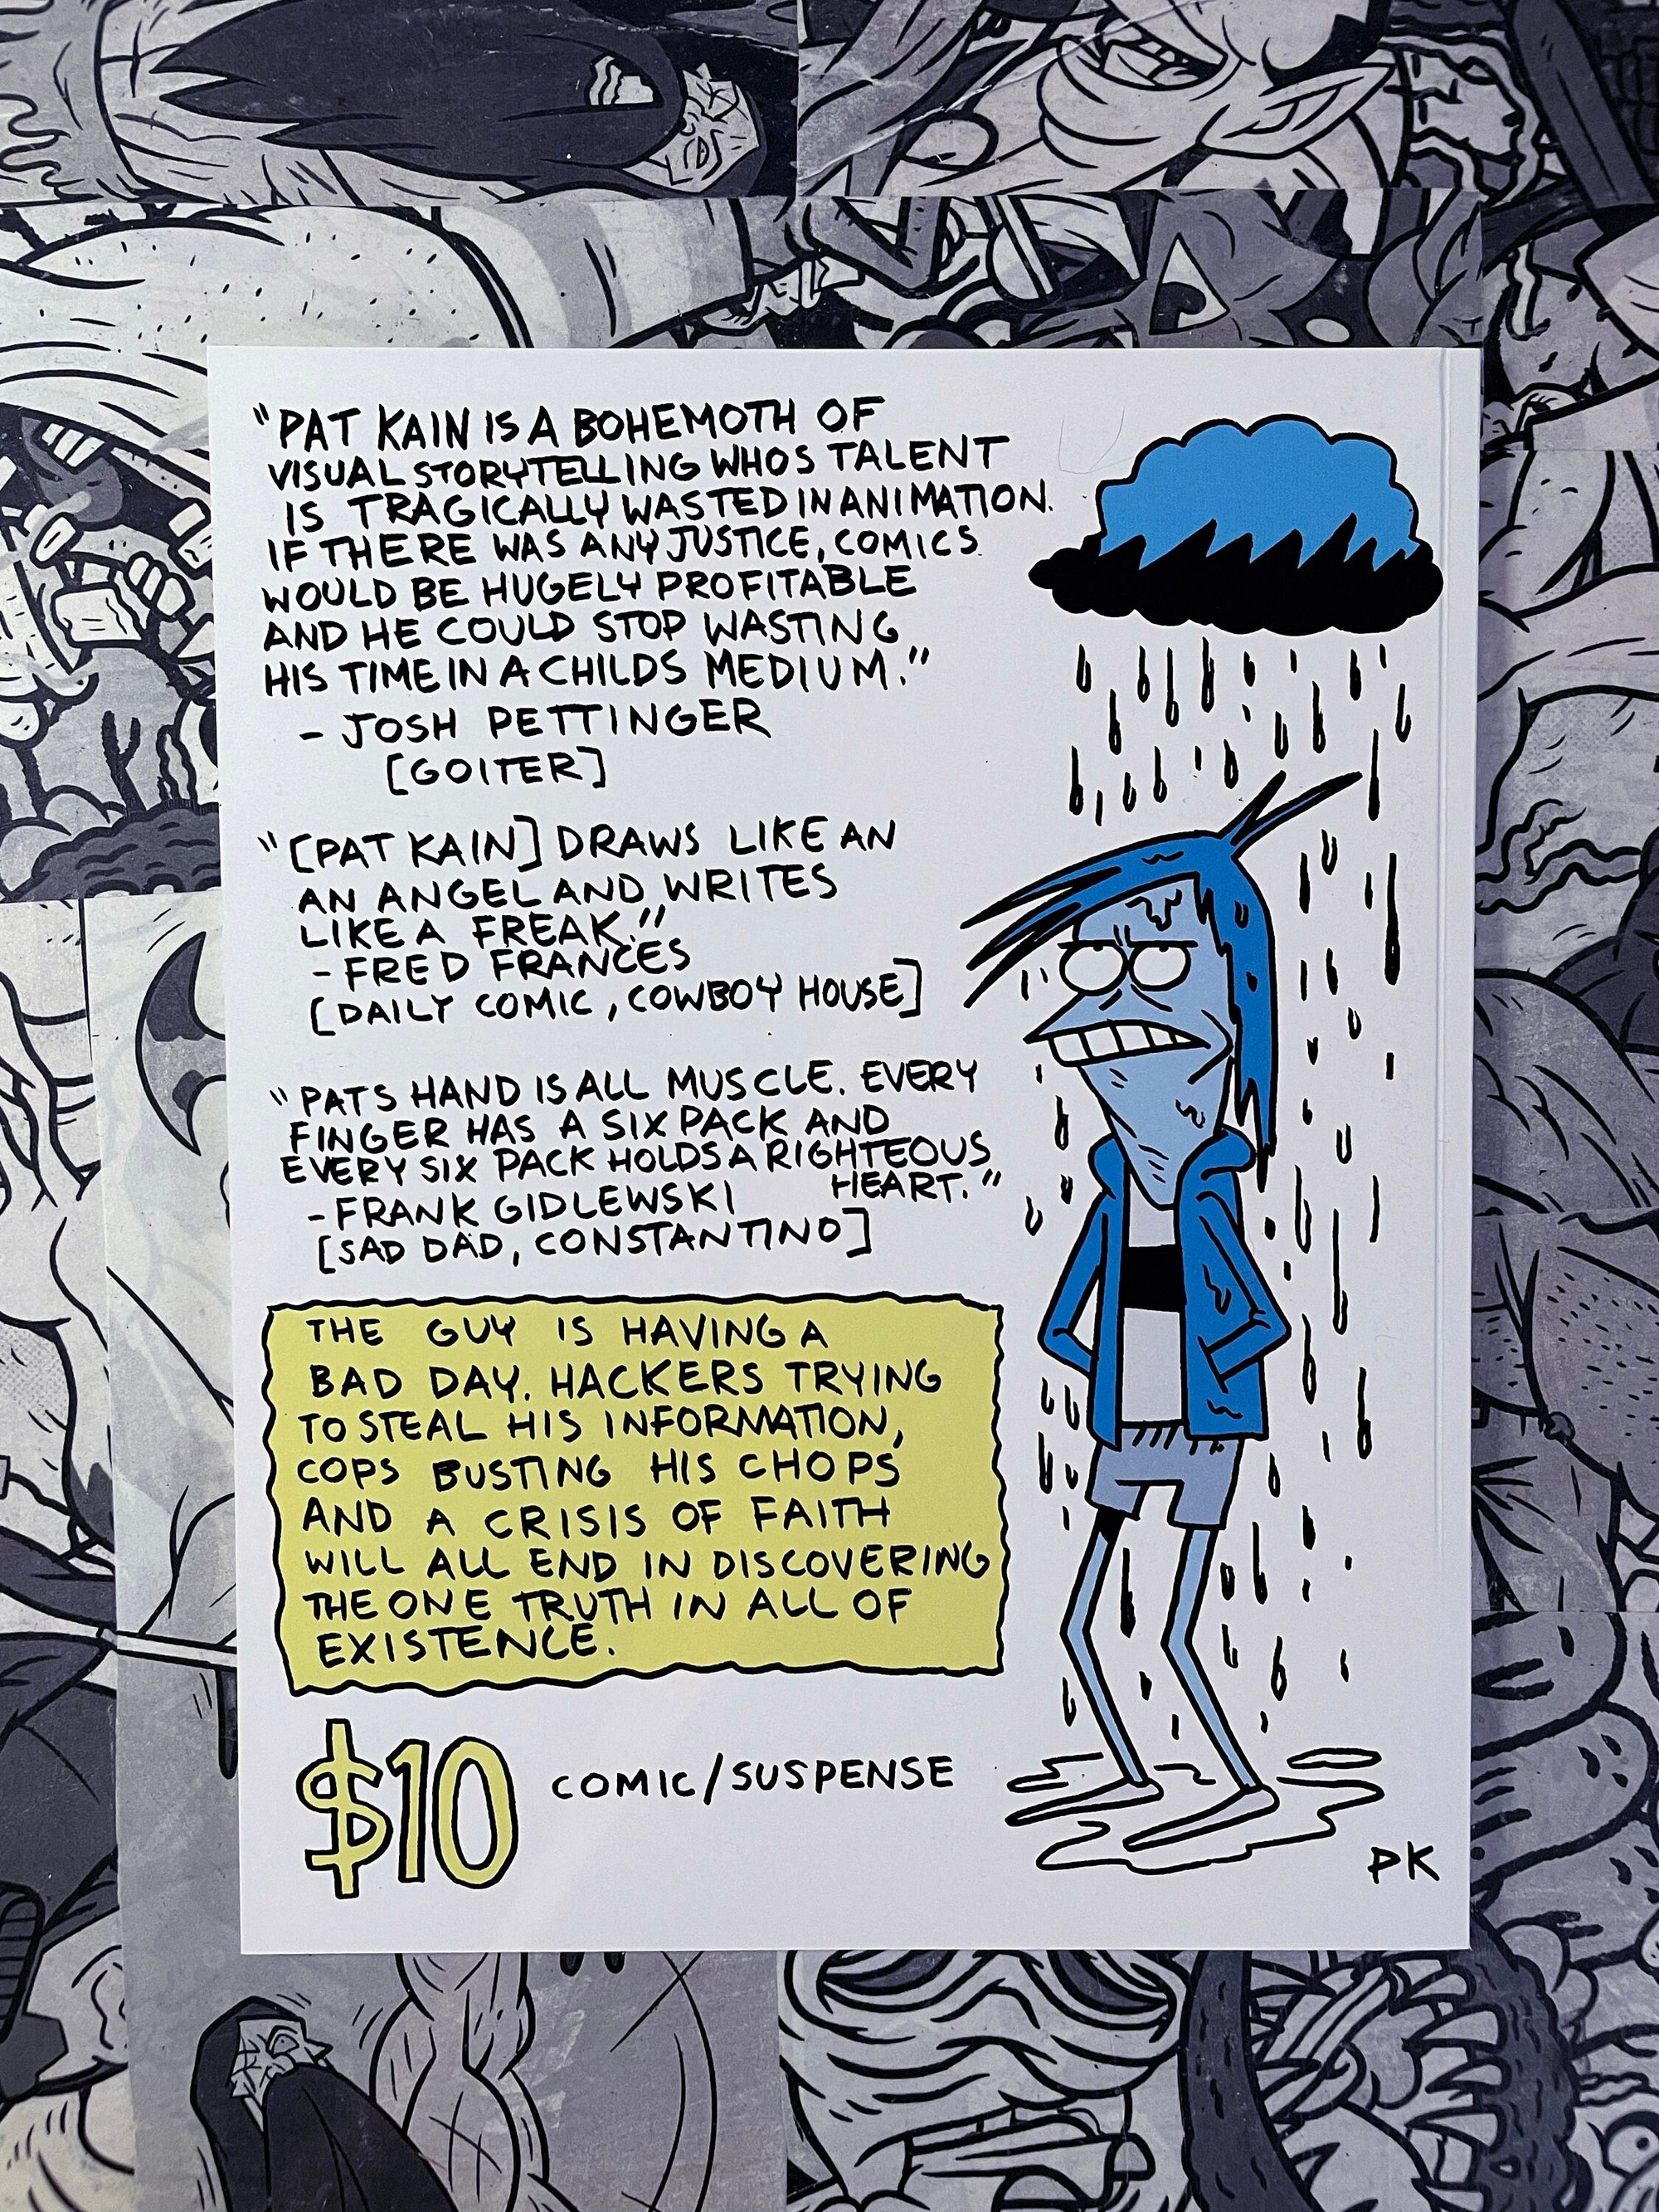 "PAT KAIN IS A BOHEMOTH OF
VISUAL STORYTELLING WHOS TALENT
IS TRAGICALLY WASTED IN ANIMATION.
IF THERE WAS ANY JUSTICE, COMICS
WOULD BE HUGELY PROFITABLE
AND HE COULD STOP WASTING
HIS TIME IN A CHILDS MEDIUM."
- JOSH PETTINGER
[GOITER]
"[PAT KAIN] DRAWS LIKE AN
AN ANGEL AND WRITES
LIKE A FREAK."
- FRED FRANCES
[DAILY COMIC, COWBOY HOUSE]
"PATS HAND IS ALL MUSCLE. EVERY
FINGER HAS A SIX PACK AND
EVERY SIX PACK HOLDS A RIGHTEOUS
HEART."
- FRANK GIDLEWSKI
[SAD DAD, CONSTANTINO]
THE GUY IS HAVING A
BAD DAY. HACKERS TRYING
TO STEAL HIS INFORMATION,
COPS BUSTING HIS CHOPS
AND A CRISIS OF FAITH
WILL ALL END IN DISCOVERING
THE ONE TRUTH IN ALL OF
EXISTENCE.
$10 COMIC/SUSPENSE
PK